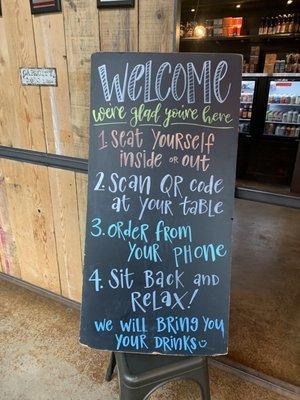 WELCOME
we're glad you're here
1. SEAT YOURSELF
INSIDE OR OUT
2. SCAN QR CODE
AT YOUR TABLE
3. ORDER FROM
YOUR PHONE
4. SIT BACK AND
RELAX!
WE WILL BRING YOU
YOUR DRINKS